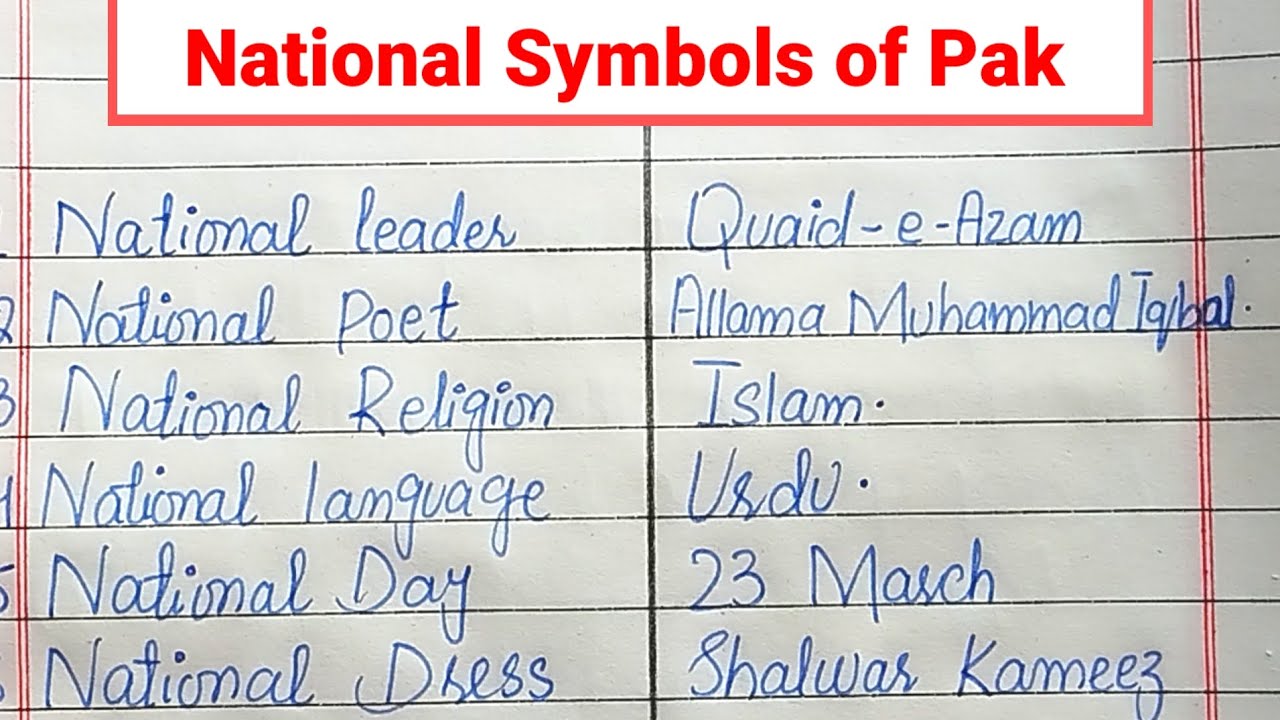 National Symbols of Pak
National leader Quaid-e-Azam
2 National Poet Allama Muhammad Iqbal.
3 National Religion Islam.
4 National language Urdu.
5 National Day 23 March
National Dress Shalwar Kameez